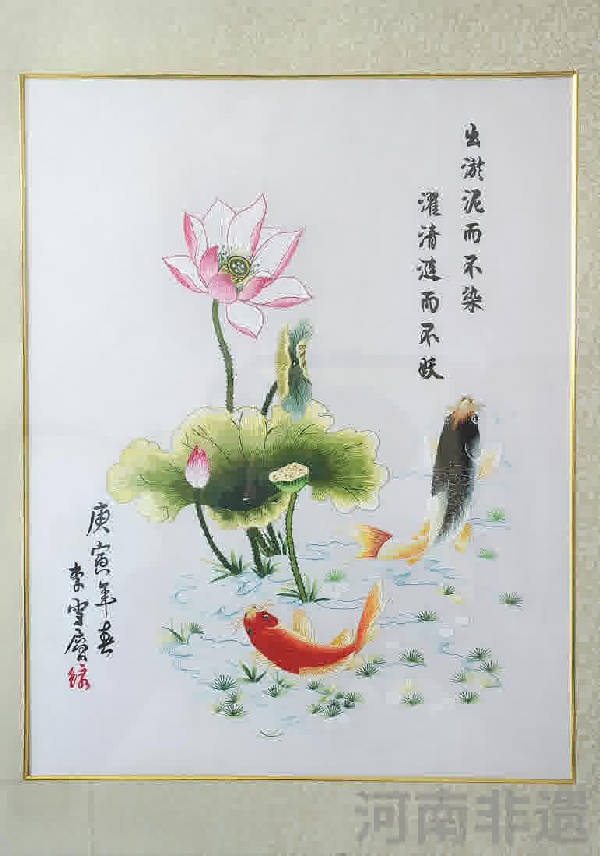 出淤泥而不染
濯清涟而不妖
庚寅年春
李雪
河南非遗